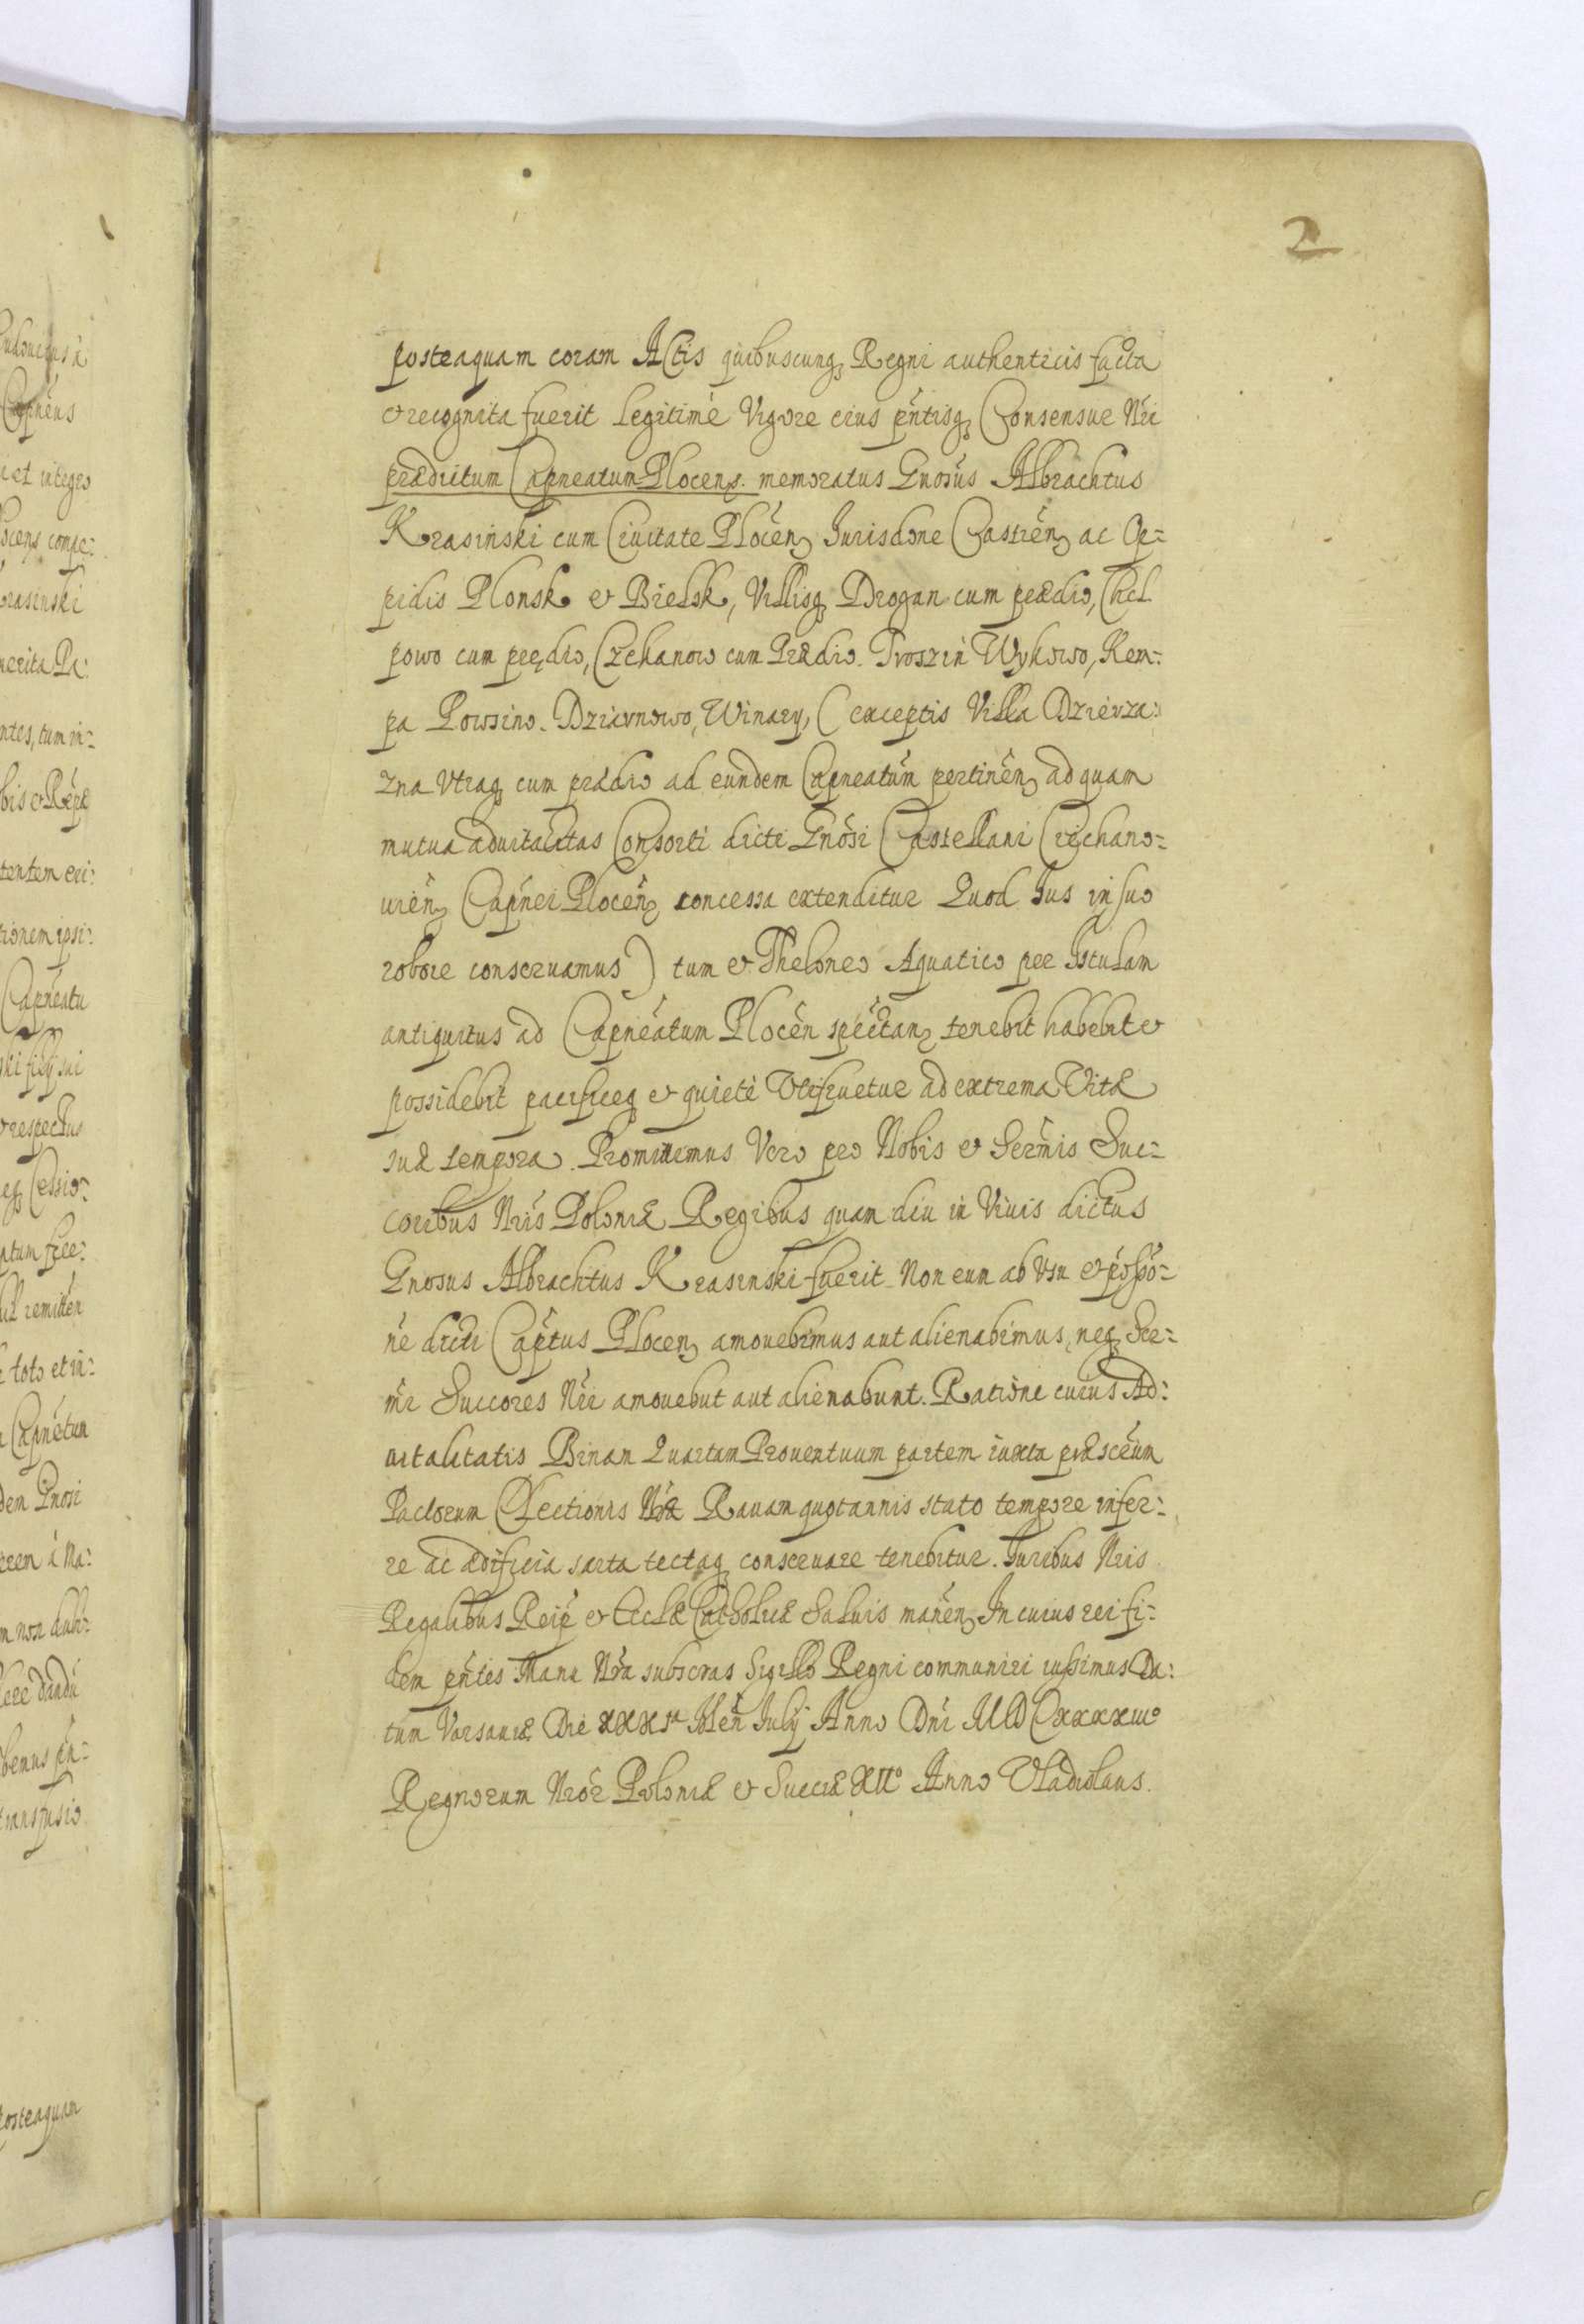 2
posteaquam coram Actis quibuscunq Regni authenticis facta
et recognita fuerit legitimè Vigore eius pntisq Consensus Nri
prædictum Capneatum Plocens. memoratus Gnosus Albrachtus
Krasinski cum Ciuitate Plocen Jurisdone Castren ac Op-
pidis Plonsk et Bielsk, Villisq Drogan cum prædio, Chel
powo cum prędio, Czchanow cum Prædio. Troszin Wykowo, Kem-
pa Powsino. Dziarnowo, Winary, (exceptis Villa Dzierza:
zna Vtraq cum prædio ad eundem Capneatum pertinen ad quam
mutua aduitalitas Consorti dicti Gnosi Castellani Ciechano-
uien Capnei Plocen concessa extenditur Quod Jus in suo
robore conseruamus) tum et Theloneo Aquatico per Istulam
antiquitus ad Capneatum Plocen spectan tenebit habebit et
possidebit pacificeq et quietè Vtifruetur ad extrema Vitæ
suæ tempora. Promittemus Vero pro Nobis et Sermis Suc-
coribus Nris Poloniæ Regibus quam diu in Viuis dictus
Gnosus Albrachtus Krasinski fuerit Non eum ab Vsu et posso-
ne dicti Captus Plocen amouebimus aut alienabimus, neq Ser-
mi Succores Nri amouebut aut alienabunt. Ratione cuius Ad:
uitalitatis Binam Quartam Prouentuum partem iuxta præsceum
Pactorum Electionis Nræ Rauam quotannis stato tempore infer-
re ac ædificia sarta tectaq conseruare tenebitur. Juribus Nris
Regalibus Reip et Ecclæ Catholicæ Saluis manen In cuius rei fi-
dem pntes Manu Nra subscras Sigillo Regni communiri iussimus Da:
tum Varsauiæ Die XXXIa Men July Anno Dni MDCxxxxiiio
Regnorum Nror Poloniæ et Sueciæ XIIo Anno Vladislaus.